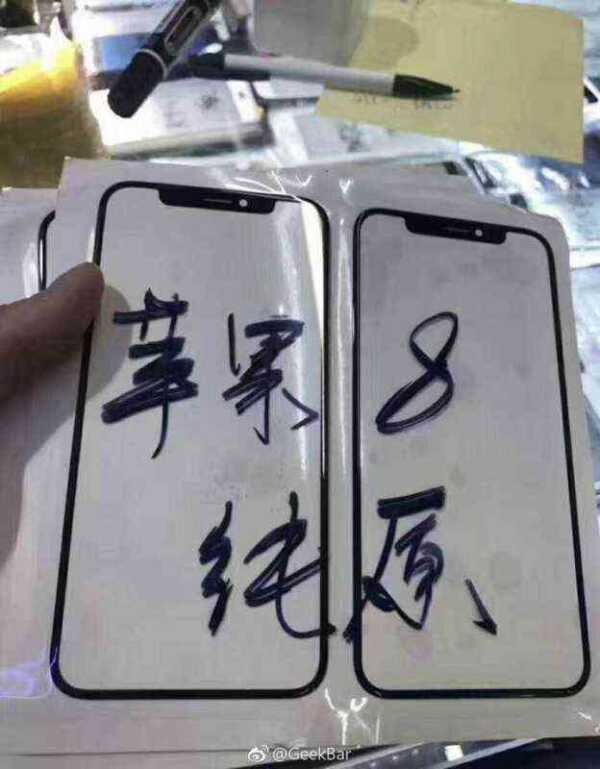 苹果 8
纯原
@GeekBar